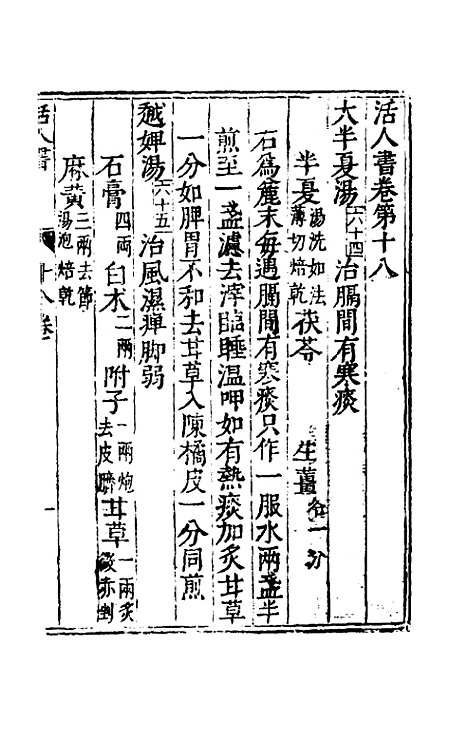 活人書卷第十八
大半夏湯六十四治膈間有寒痰
半夏湯洗如法薄切焙乾茯苓 生薑各一分
右爲麄末每遇膈間有寒痰只作一服水兩盞半
煎至一盞濾去滓臨睡温呷如有熱痰加炙甘草
一分如脾胃不和去甘草入陳橘皮一分同煎
越婢湯六十五治風濕痺脚弱
石膏四兩白术二兩附子一兩炮去皮臍甘草一兩炙
麻黄三兩去節湯泡焙乾
活人書 十八卷 一